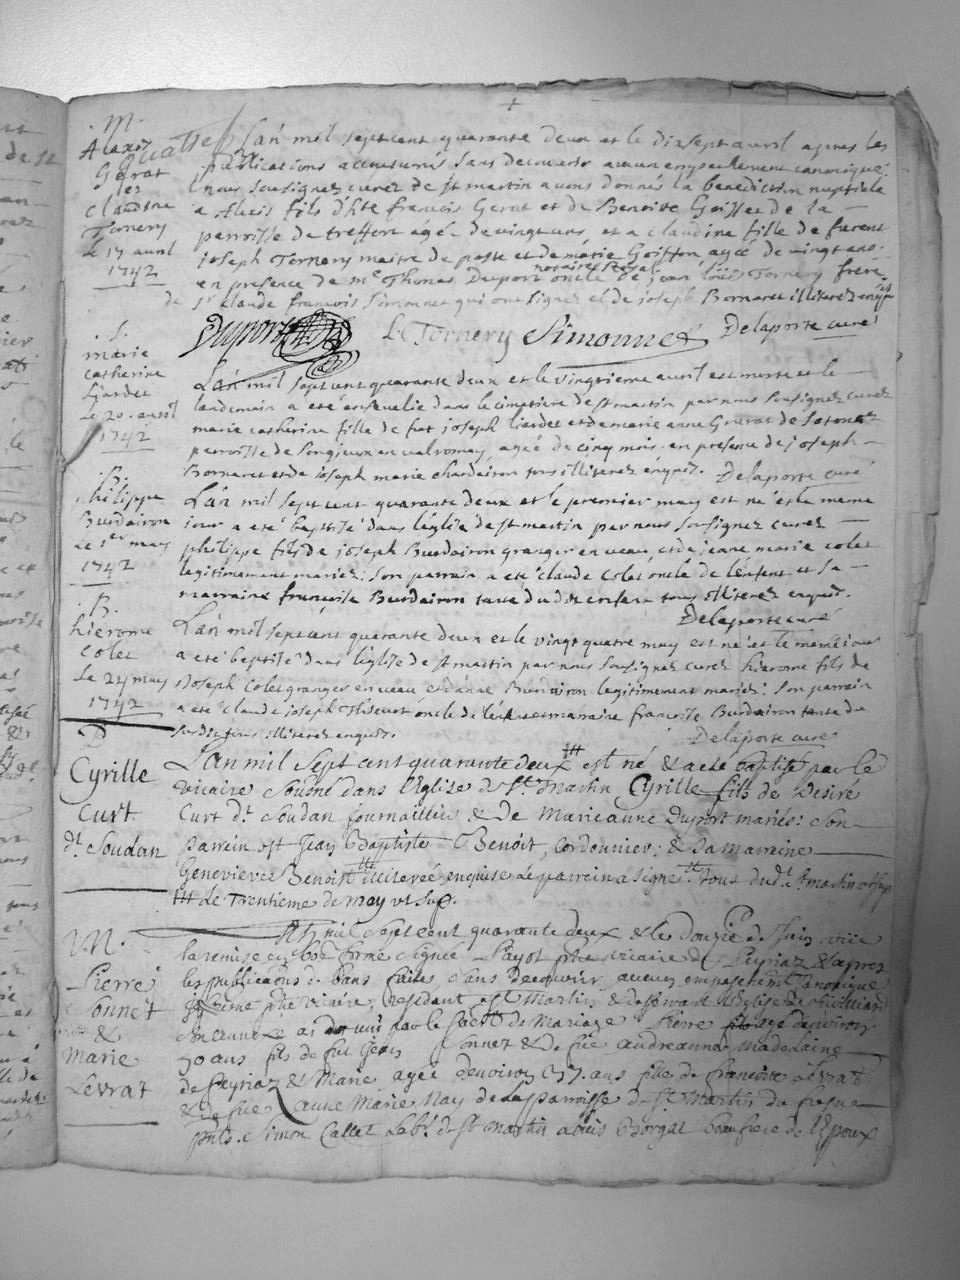 +
.M.
Alexis
Gerat
et
Claudine
Tornery
le 17 avril
1742
Lan mil sept cent quarante deux et le dixsept avril apres les
publications accoutumés sans decouvrir aucun empechement canonique
nous soussignez curez de st martin avons donnés la benediction nuptiale
a Alexis fils d'hte francois Gerat et de Benoite Goiffet de la
parroisse de treffort agé de vingt uns et a claudine fille de
joseph Tornery maitre de poste et de marie Goiffon agée de vingt ans
en presence de me Thomas Duport notaire Royal oncle Tornery frere
de sr claude francois Simonnet qui ont signez et de joseph Bornaret illiterez enquis
Duport Le Tornery Simonnet Delaporte curé
.S.
marie
catherine
liardet
le 20. avril
1742
Lan mil sept cent quarante deux et le vingtieme avril est morte et le
landemain a eté ensevelie dans le cimetiere de st martin par nous soussignez curez
marie catherine fille de fut joseph liardet et de marie anne de
parroisse de Songieux en valromey, agée de cinq mois en presence de joseph
Bornaret et de joseph marie chardeiron tous illiterez enquis. Delaporte curé
.B.
philippe
Burdairon
le 1er may
1742
Lan mil sept cent quarante deux et le premier may est né et le meme
jour a eté baptisé dans leglise de st martin par nous soussignez curez
philippe fils de joseph Burdairon granger en veau et de jeane marie colet
legitimement mariez: son parrain a eté claude colet oncle de lenfent et sa
marraine francoise Burdairon tante du dit enfent tous illiterez enquis.
Delaporte curé
.B.
hierome
colet
le 24 may
1742
Lan mil sept cent quarante deux et le vingt quatre may est né et le meme jour
a eté baptisé dans leglise de st martin par nous soussignez curez hierome fils de
joseph colet granger en veau et danne Burdairon legitimement mariez: son parrain
a eté claude joseph oncle de lenfent et marraine francoise Burdairon tante du
susdit tous illiterez enquis. Delaporte curé
B
Cyrille
Curt
dt. Soudan
Lan mil sept cent quarante deux est né & a eté baptisé par le
vicaire soussné dans l'Eglise de St. Martin Cyrille fils de Desiré
Curt dt. Soudan fournaillier & De Marieanne Duport mariés: son
Parrein est Jean Baptiste Benoit, cordonnier; & sa marreine
Genevieve Benoist illiterée enquise le parrein a signé Tous dudt. St martin
le Trentieme de may ut sup.
M.
Pierre
Sonnet
&
Marie
Levrat
L'An mil sept cent quarante deux & le Douzie de Juin, veüe
la remise en bone forme signée Payot ptre vicaire de Peyriaz & apres
les publications de bans faites, sans decouvrir aucun empeschement Canonique
ptre vicaire, residant a St Martin, & desservant l'Eglise de
ai uni par le sacrt. de Mariage Pierre agé denviron
30 ans fils de feu Jean Sonnet & de fûe Andreanne Madelaine
de Peyriaz & Marie agée denviron 37. ans fille de francoise Levrat
& de fûe Anne Marie Nay de la parroisse de St. Martin du fresne
pnts. Simon Callet Labr. de St Martin beaufrere de l'Epoux